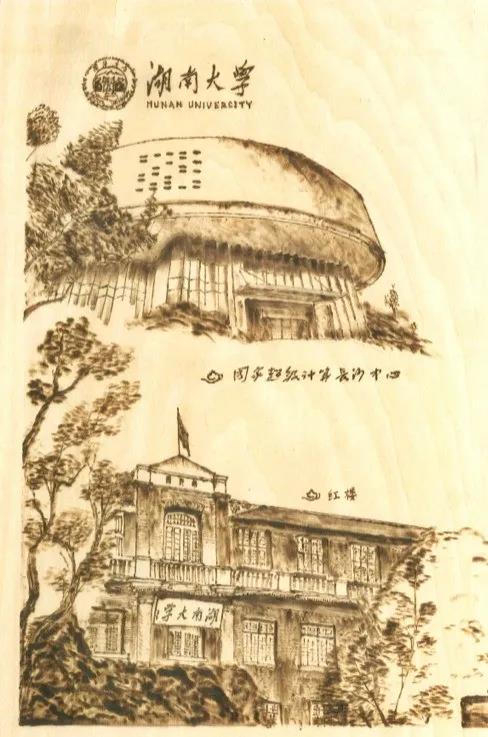 湖南大学
HUNAN UNIVERCITY
国家超级计算长沙中心
红楼
湖南大学